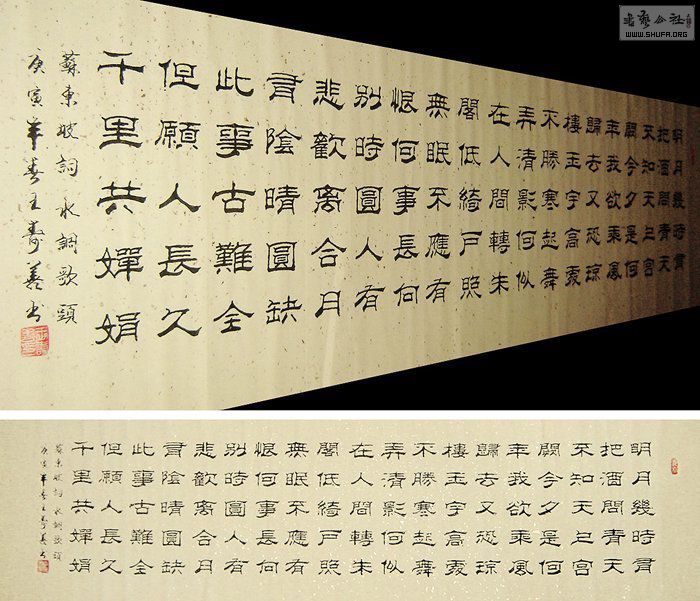 書藝公社
WWW.SHUFA.ORG
明月幾時有
把酒問青天
不知天上宮
闕今夕是何
年我欲乘風
歸去又恐瓊
樓玉宇高處
不勝寒起舞
弄清影何似
在人間轉朱
閣低綺戶照
無眠不應有
恨何事長向
別時圓人有
悲歡離合月
有陰晴圓缺
此事古難全
但願人長久
千里共嬋娟
蘇東坡詞水調歌頭
庚寅年春王壽書
明月幾時有
把酒問青天
不知天上宮
闕今夕是何
年我欲乘風
歸去又恐瓊
樓玉宇高處
不勝寒起舞
弄清影何似
在人間轉朱
閣低綺戶照
無眠不應有
恨何事長向
別時圓人有
悲歡離合月
有陰晴圓缺
此事古難全
但願人長久
千里共嬋娟
蘇東坡詞水調歌頭
庚寅年春王壽書